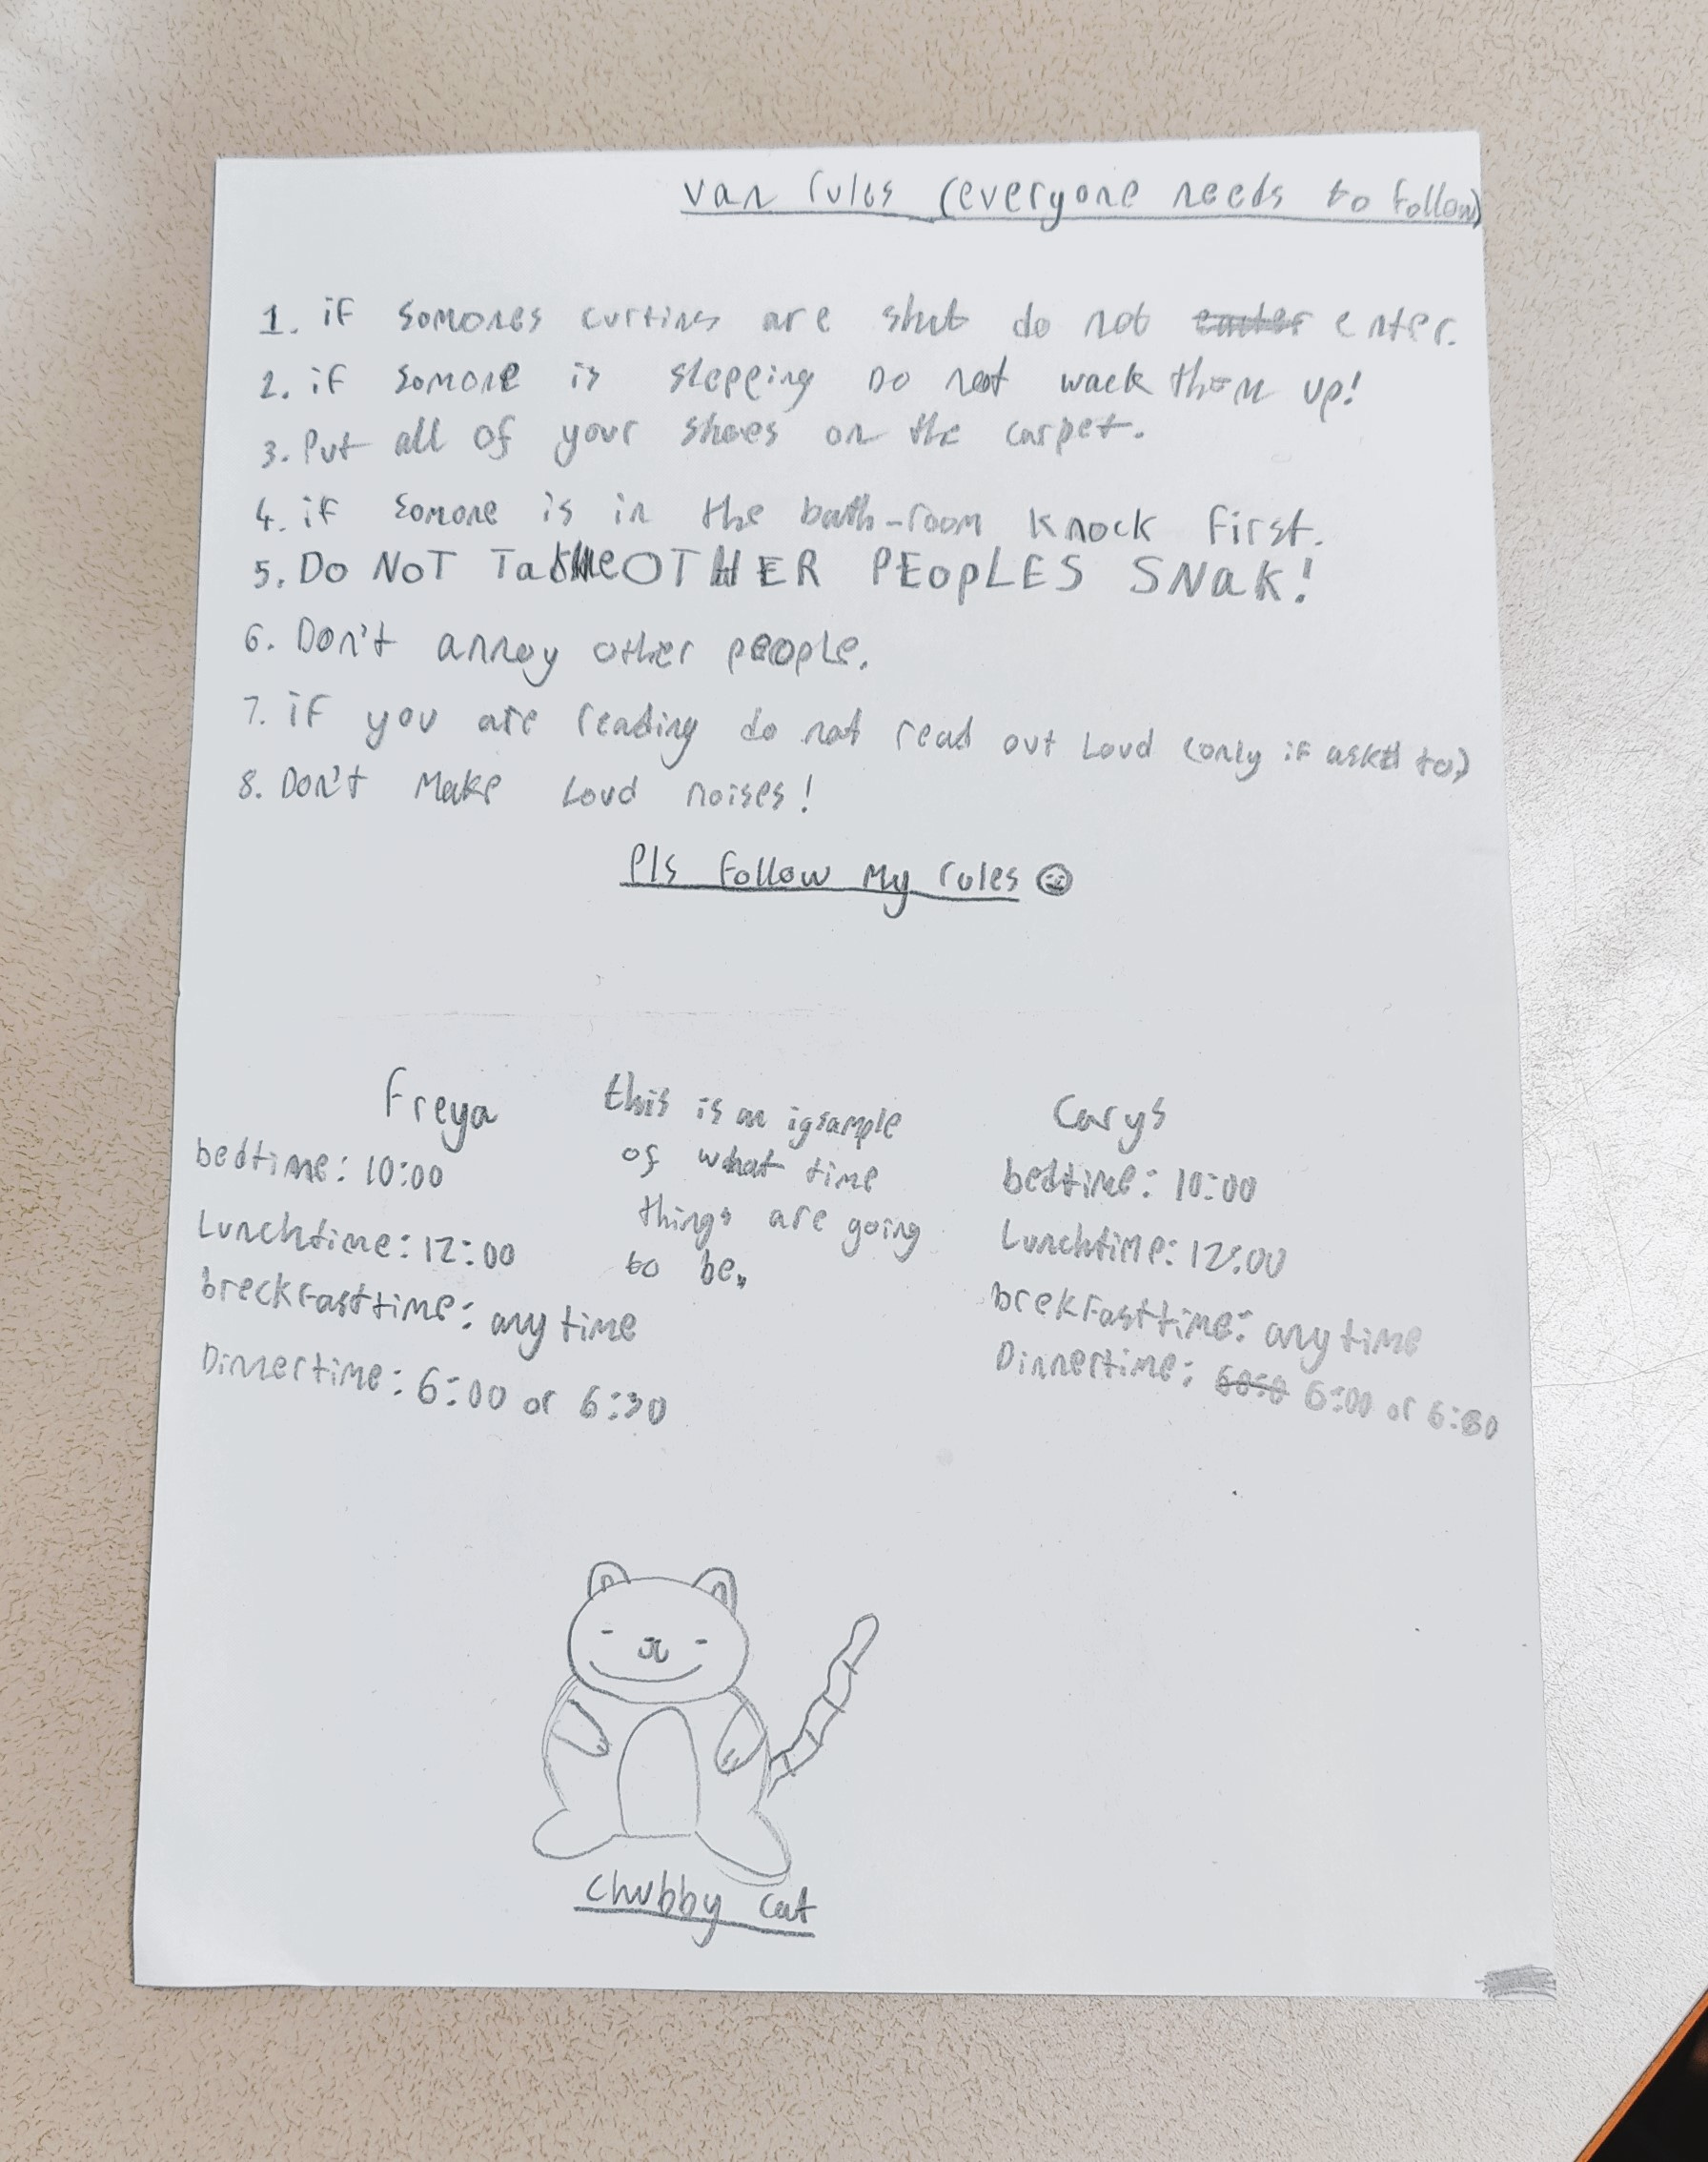 van rules (everyone needs to follow)
1. if somones curtins are shut do not enter.
2. if somone is slepping Do not wack them up!
3. Put all of your shoes on the carpet.
4. if somone is in the bath-room knock first.
5. Do NOT Take OTHER PEOPLES SNak!
6. Don't annoy other people.
7. if you are reading do not read out Loud (only if askd to)
8. Don't Make Loud noises!
Pls Follow My rules
Freya
bedtime: 10:00
Lunchtime: 12:00
breckfasttime: any time
Dinnertime: 6:00 or 6:30
this is an igsample
of what time
things are going
to be.
Carys
bedtime: 10:00
Lunchtime: 12:00
brekfasttime: any time
Dinnertime: 6:00 or 6:30
chubby cat